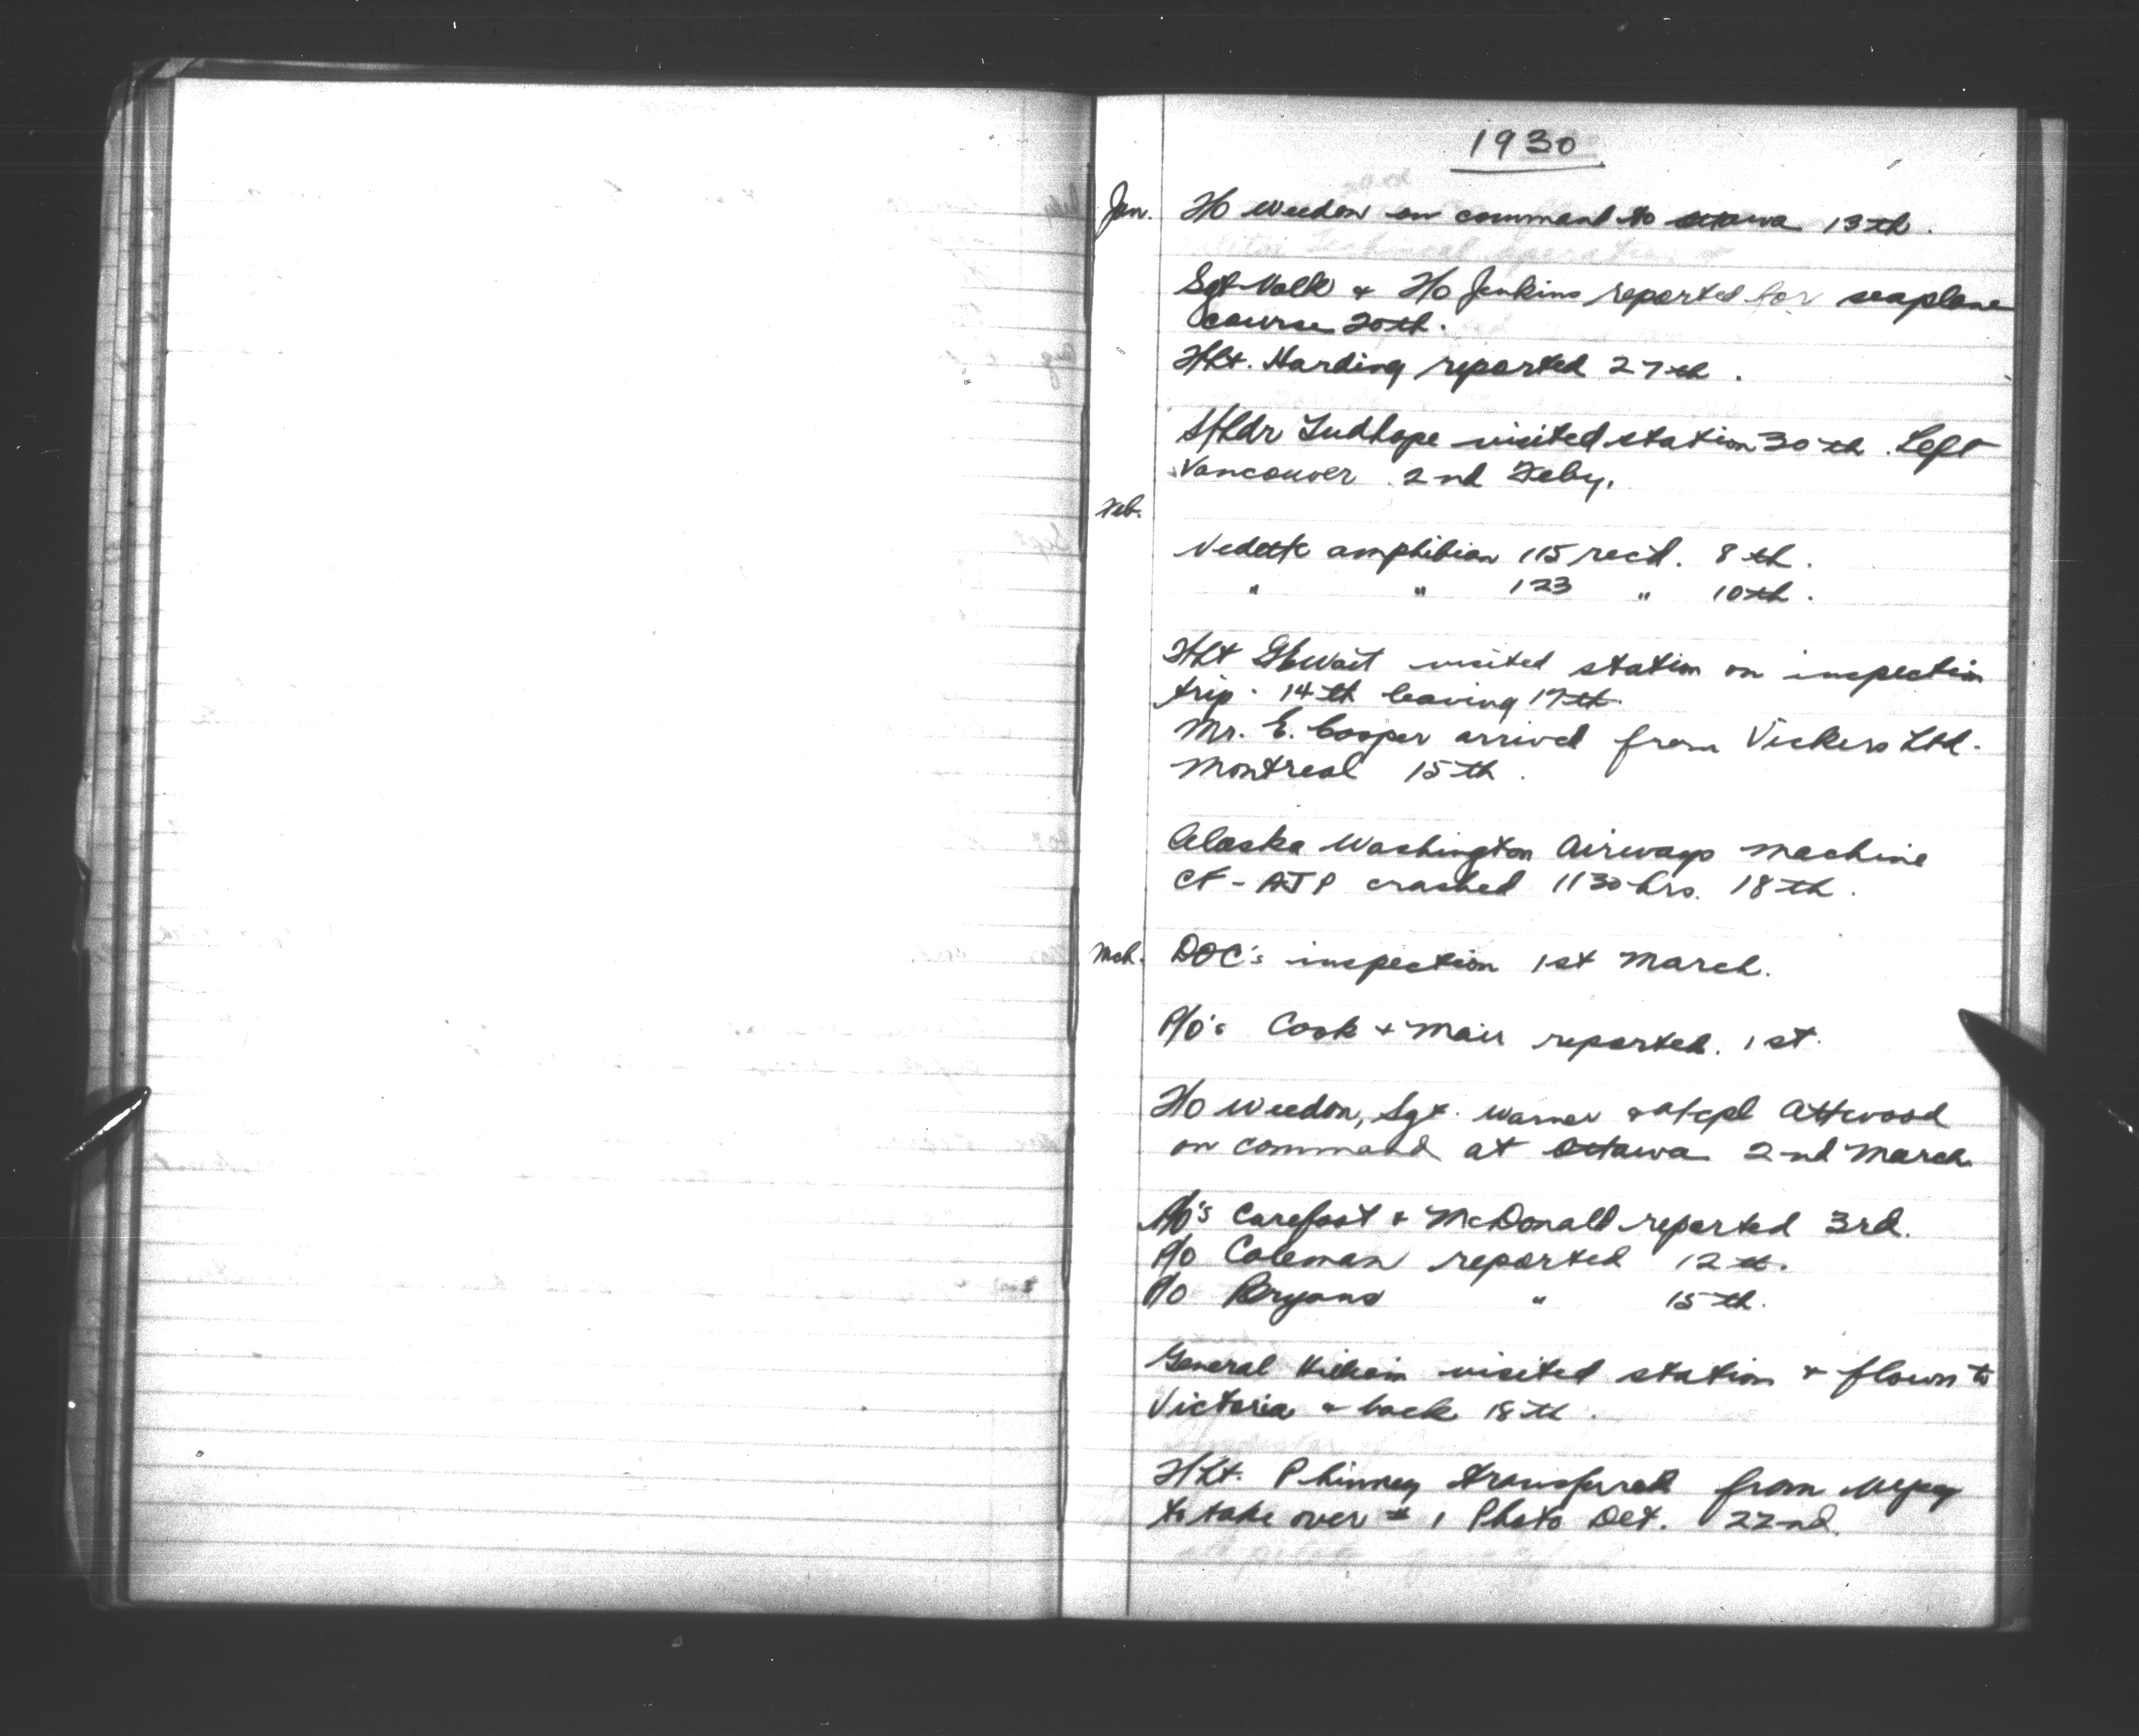 1930
Jan. F/O Weedon on command to Ottawa 13th.
Sgt Valk & F/O Jenkins reported for seaplane
course 20th.
F/Lt. Harding reported 27th.
S/Ldr Tudhope visited station 30th. Left
Vancouver 2nd Feby.
Feb.
Vedette amphibian 115 recd. 8th.
" " 123 " 10th.
F/Lt visited station on inspection
trip. 14th leaving 17th.
Mr. E. Cooper arrived from Vickers Ltd.
Montreal 15th.
Alaska Washington Airways machine
CF-AJP crashed 1130 hrs. 18th.
Mch. DOC's inspection 1st March.
P/O's Cook & Mair reported. 1st.
F/O Weedon, Sgt. Warner & A/Cpl Attwood
on command at Ottawa 2nd March
P/O's Carefoot & McDonald reported 3rd.
P/O Coleman reported 12th.
P/O Bryans " 15th.
General visited station & flown to
Victoria & back 18th.
F/Lt. Phinney transferred from Wpeg
to take over # 1 Photo Det. 22nd.